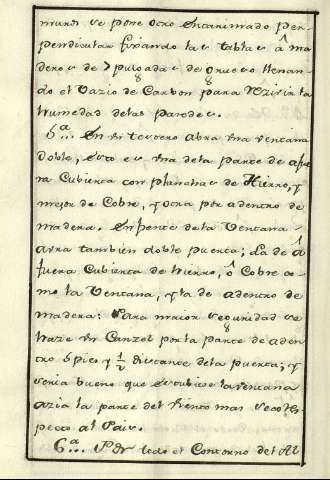 muros se pone otro encaxinado per-
pendicular fixando las tablas â ma
deros de 7 pulgadas de grueso llenan-
do el vazio de Carbon para
humedad delas paredes.
5.ª... En tercero abra una ventana
doble, esto es una dela parte de afue
ra Cubierta con planchas de Hierro, y
mejor de Cobre, y otra por adentro de
madera. Enfrente dela Ventana
avra tambien doble puerta; La de â
fuera Cubierta de hierro, ô Cobre co-
mo la Ventana, y la de adentro de
madera: Para maior seguridad se
haze un Canzel por la parte de aden
tro 5 pies y ½ distante dela puerta; y
seria bueno que estubiese la ventana
azia la parte del viento mas seco Res
pecto al Pais.
6.ª... Por todo el Contorno del Al